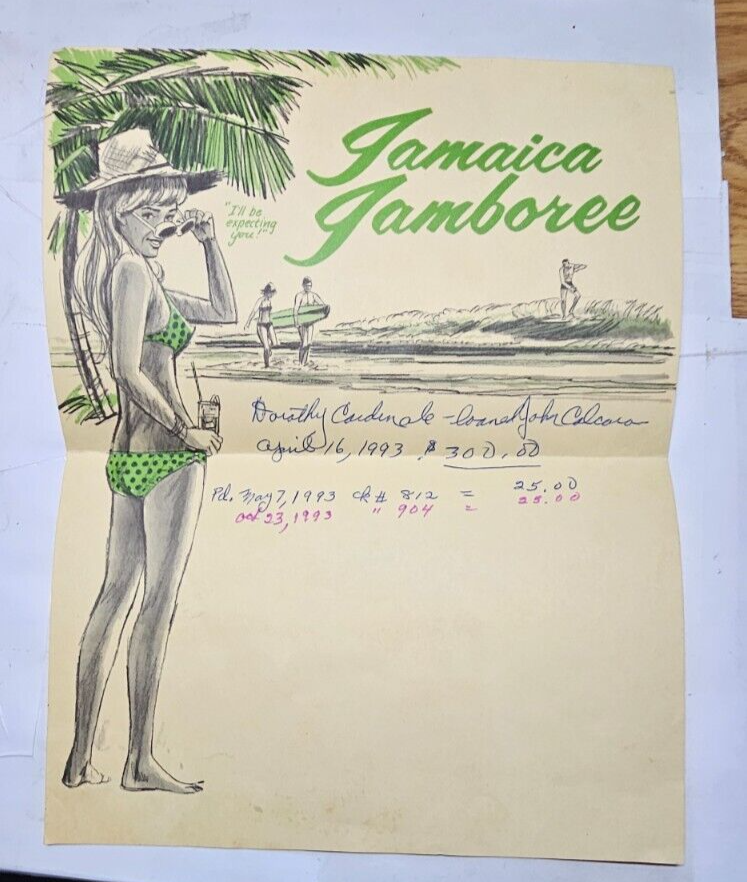 Jamaica
Jamboree
"I'll be
expecting
you!"
Dorothy Cardinale - loaned John Calcara
April 16, 1993 $300.00
Pd. May 7, 1993 ck # 812 = 25.00
Oct 23, 1993 " 904 = 25.00